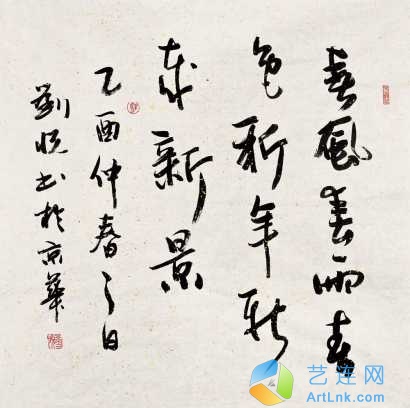 春風春雨春
色新年新
歲新景
乙酉仲春之日
劉书於京華
艺连网
ArtLnk.com